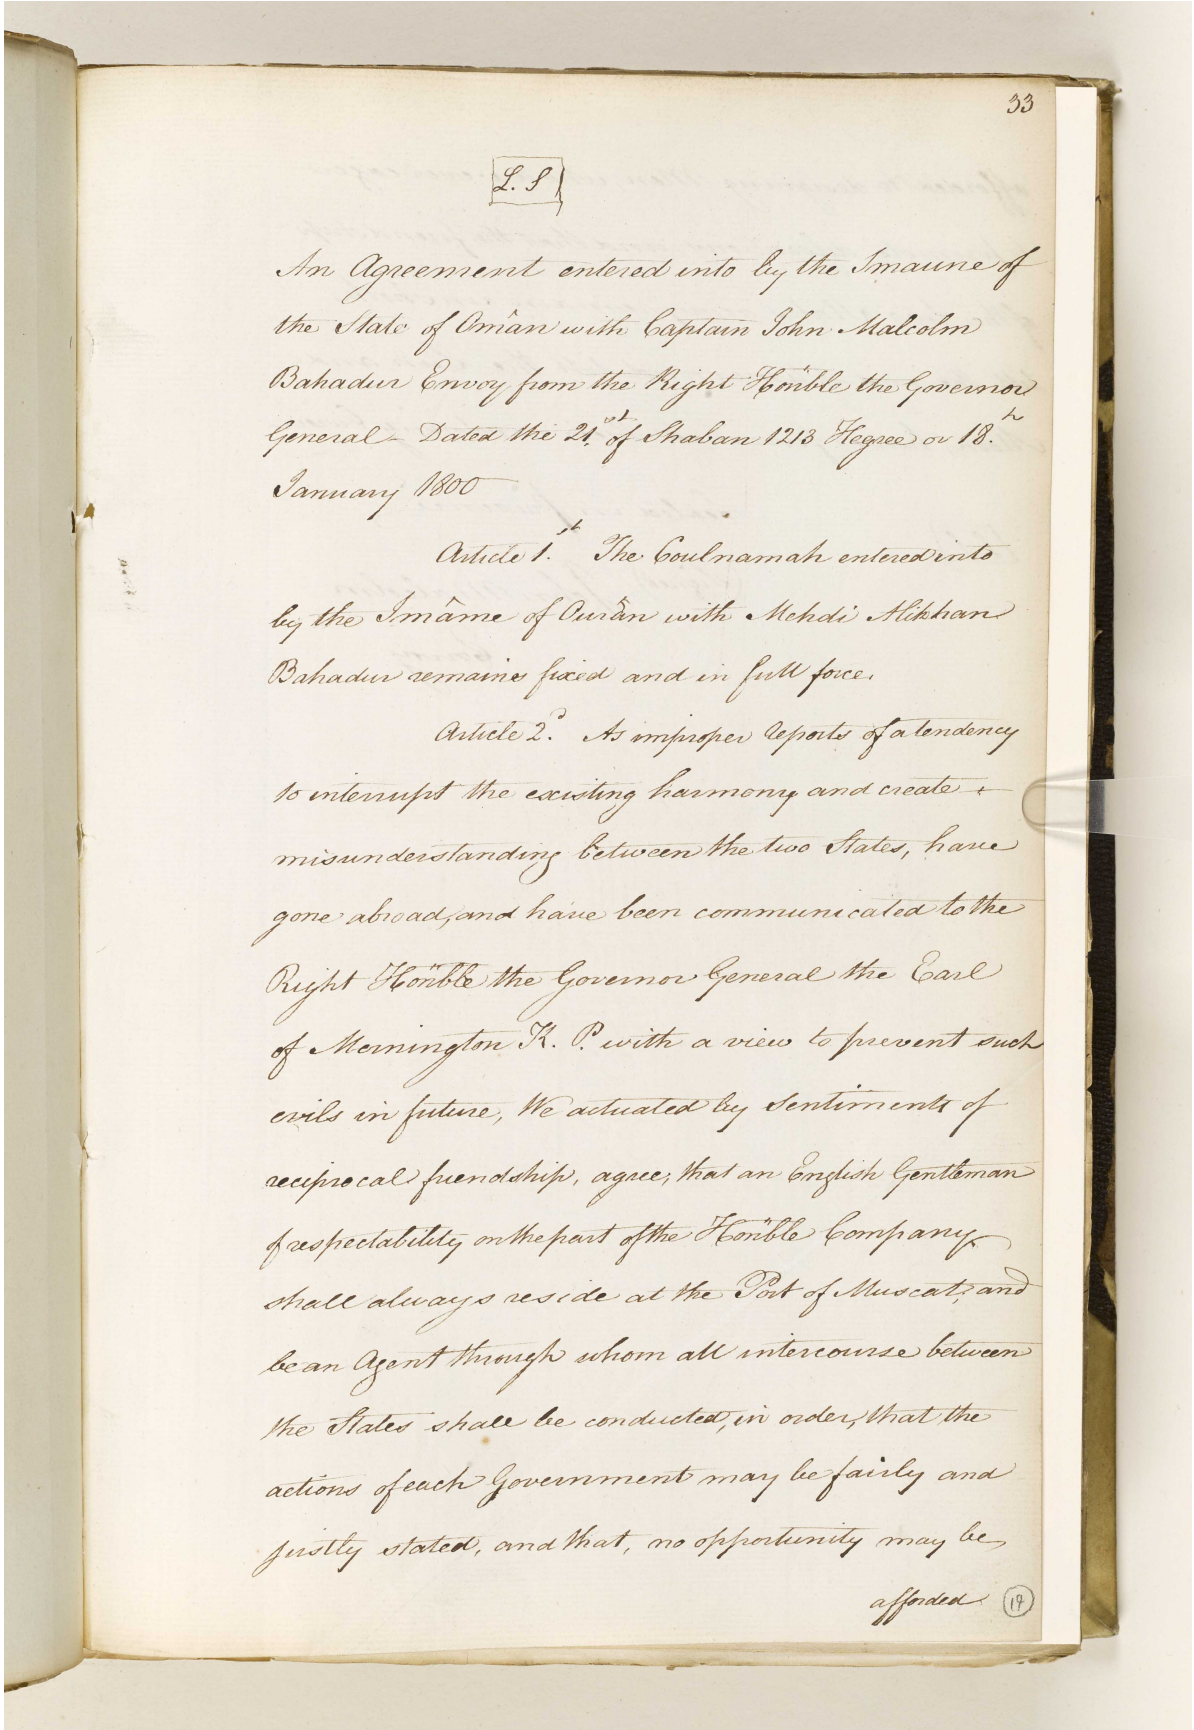 33
L. S
An Agreement entered into by the Imaune of
the State of Omân with Captain John Malcolm
Bahadur Envoy from the Right Honble the Governor
General - Dated the 21.st of Shaban 1213 Hegree or 18.th
January 1800
Article 1.st The Coulnamah entered into
by the Imâme of Omân with Mehdi Alikhan
Bahadur remains fixed and in full force.
Article 2.d As improper reports of a tendency
to interrupt the existing harmony and create
misunderstanding between the two States, have
gone abroad, and have been communicated to the
Right Honble the Governor General the Earl
of Mornington K. P. with a view to prevent such
evils in future, We actuated by sentiments of
reciprocal friendship, agree, that an English Gentleman
of respectability on the part of the Honble Company
shall always reside at the Port of Muscat, and
be an Agent through whom all intercourse between
the States shall be conducted, in order, that the
actions of each Government may be fairly and
justly stated, and that, no opportunity may be
afforded